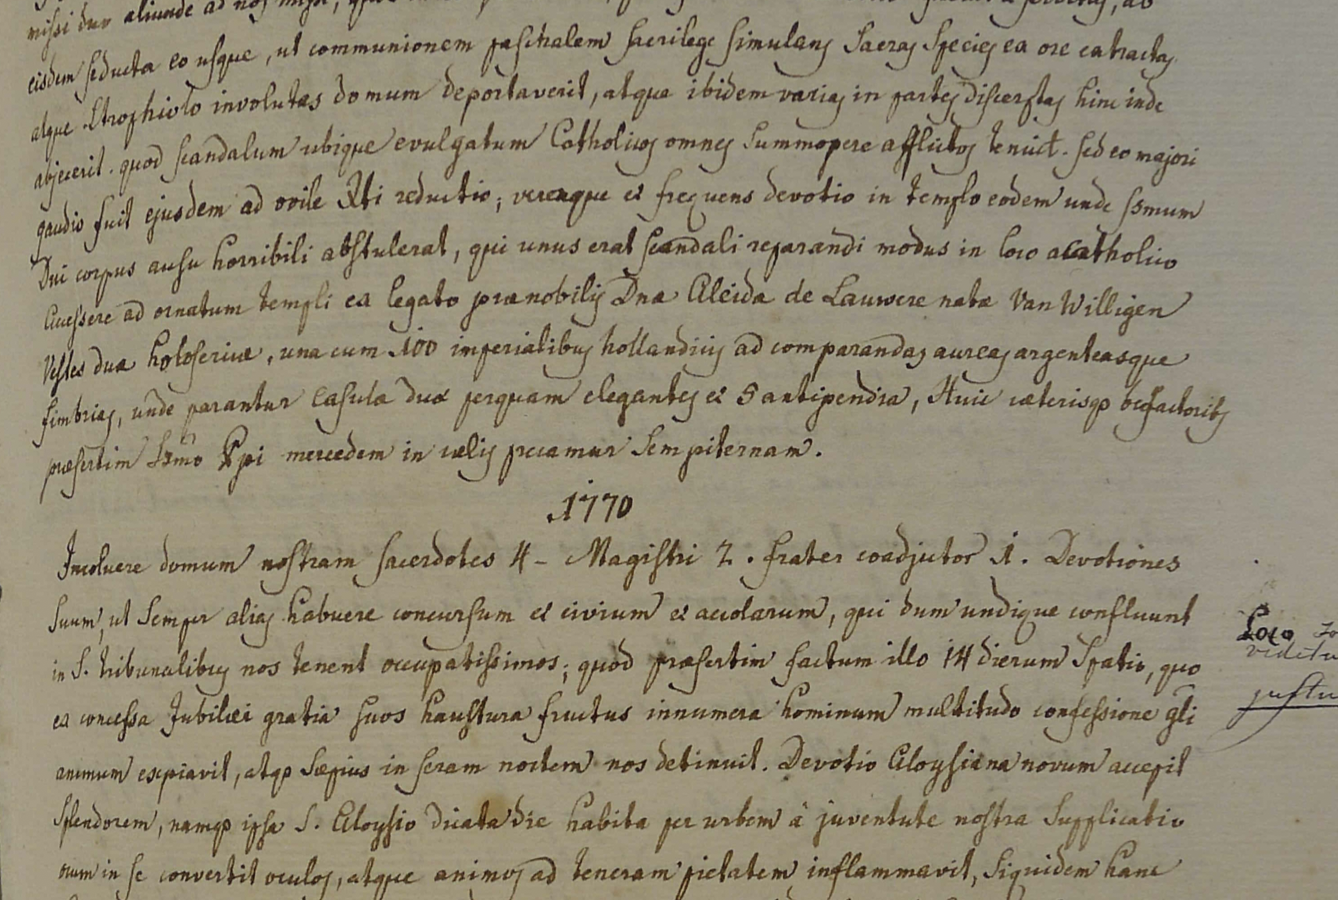 aliunde ad nos
eisdem seducta eo usque, ut communionem paschalem sacrilege simulans Sacras Species ea ore extractas
atque Strophiolo involutas domum deportaverit, atque ibidem varias in partes discerptas hinc inde
abjecerit. quod scandalum ubique evulgatum Catholicos omnes summopere afflictos tenuit. sed eo majori
gaudio fuit ejusdem ad ovile Xti reductio; veraque et frequens devotio in templo eodem unde SSmum
Dni corpus ausu horribili abstulerat, qui unus erat scandali reparandi modus in loco acatholico
Accessere ad ornatum templi ex legato prænobilis Dnæ Aleida de Lauwere natæ Van Willigen
Vestes duæ holosericæ, una cum 100 imperialibus hollandicis ad comparandas aureas argenteasque
fimbrias, unde parantur Casulæ duæ perquam elegantes et 5 antipendia, Huic cæterisqꝫ bnfactoribs
præsertim Ssmo Epi mercedem in cælis precamur Sempiternam.
1770
Incoluere domum nostram Sacerdotes 4 - Magistri 2. frater coadjutor 1. Devotiones
suum, ut Semper alias habuere concursum et civium et accolarum, qui dum undique confluunt
in S. tribunalibus nos tenent occupatissimos; quod præsertim factum illo 14 dierum Spatio, quo
ex concessa Jubilæi gratia suos haustura fructus innumera hominum multitudo confessione gnli
animum expiavit, atqꝫ sæpius in seram noctem nos detinuit. Devotio Aloysiana novum accepit
splendorem, namqꝫ ipsa S. Aloysio dicata die habita per urbem à juventute nostra Supplicatio
onum in se convertit oculos, atque animos ad teneram pietatem inflammavit, Siquidem hanc
Loco
videtu
justu